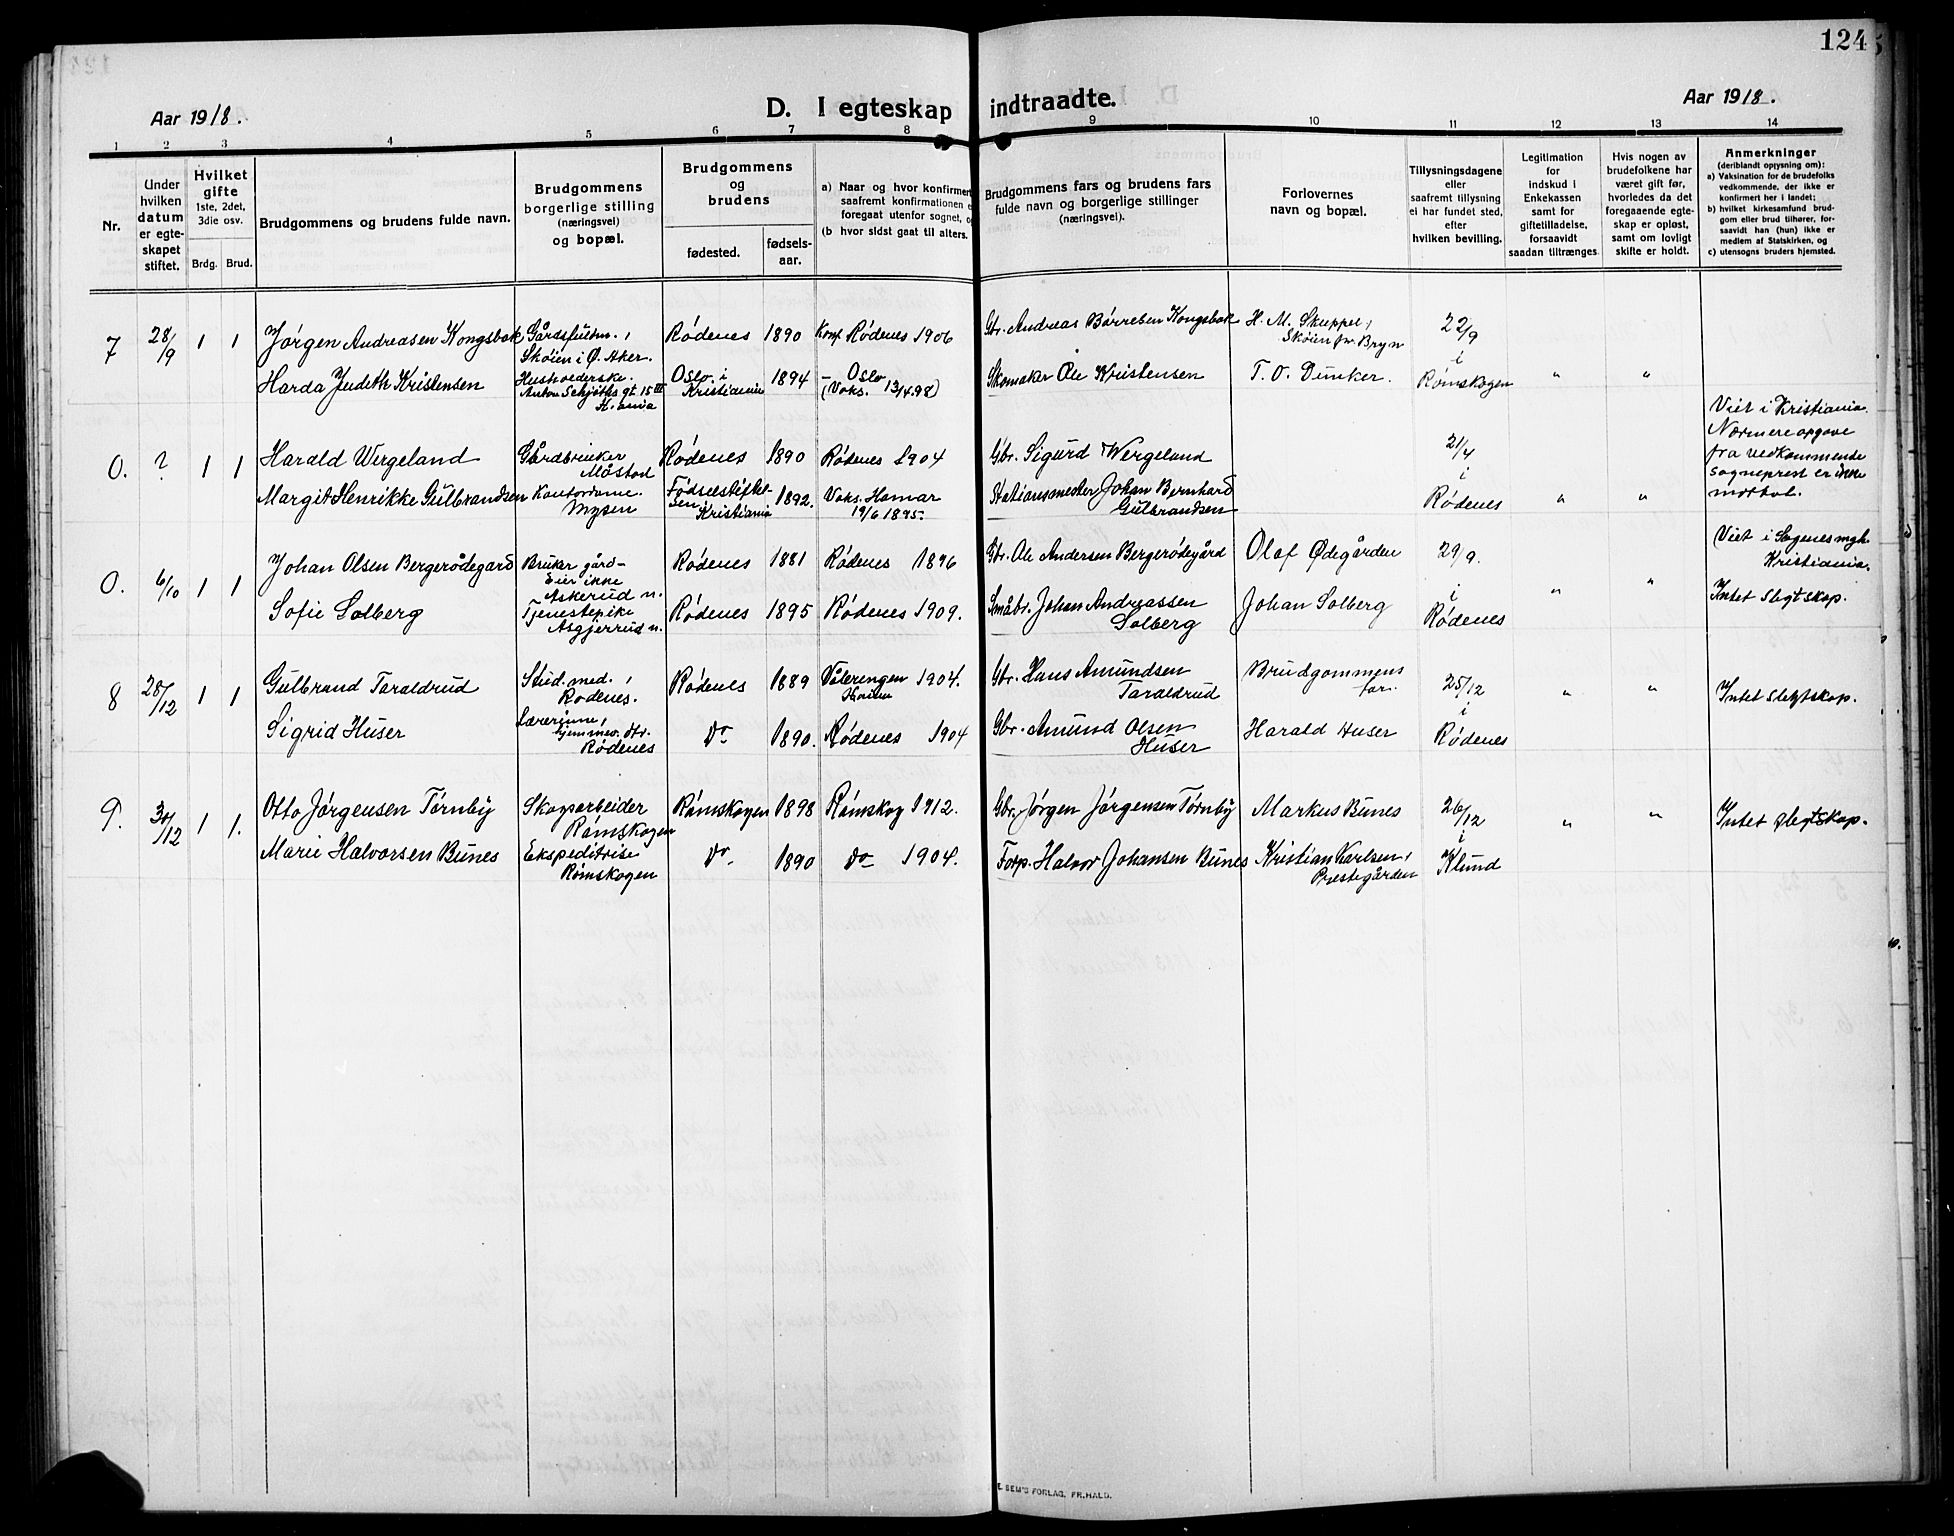 124
Aar 1918.
D. I egteskap indtraadte.
Aar 1918.
1 2 3 4 5 6 7 8 9 10 11 12 13 14
Nr.
Under hvilken datum er egteskapet stiftet.
Hvilket gifte 1ste, 2det, 3die osv.
Brdg. Brud.
Brudgommens og brudens fulde navn.
Brudgommens borgerlige stilling (næringsvei) og bopæl.
Brudgommens og brudens
fødested.
fødsels-aar.
a) Naar og hvor konfirmert
saafremt konfirmationen e
foregaat utenfor sognet, og
(b hvor sidst gaat til alters.
Brudgommens fars og brudens fars
fulde navn og borgerlige stillinger
(næringsvei).
Forlovernes
navn og bopæl.
Tillysningsdagene
eller
saafremt tillysning
ei har fundet sted,
efter
hvilken bevilling.
Legitimation
for
indskud i
Enkekassen
samt for
giftetilladelse,
forsaavidt
saadan tiltrænges
Hvis nogen av
brudefolkene har
været gift før,
hvorledes da det
foregaaende egte-
skap er opløst,
samt om lovligt
skifte er holdt.
Anmerkninger
(deriblandt opysning om):
a) Vaksination for de brudefolks
vedkommende, der ikke er
konfirmert her i landet;
b) hvilket kirkesamfund brud-
gom eller brud tilhører, for-
saavidt han (hun) ikke er
medlem af Statskirken, og
c) utensogns bruders hjemsted.
7 28/9 1 1 Jørgen Andreasen Kongsbok Gårdsfuldm., Skøien i Ø. Aker. Rødenes 1890 Konf Rødenes 1906 Gbr. Andreas Børresen Kongsbok H. M. Skeppel, Skøien pr. Bryn 22/9 i Rømskogen
Harda Judith Kristensen Husholderske. Anton Schjøths gt. 15 III K.ania Oslo i Kristiania 1894 – Oslo (Vaks. 13/4.98) Skomaker Ole Kristensen T. O. Dunker. " "
0. ? 1 1 Harald Wergeland Gårdbruker Måstad Rødenes 1890 Rødenes 1904 Gbr. Sigurd Wergeland 21/4 i Rødenes
Viet i Kristiania.
Nærmere opgave
fra vedkommende
sogneprest er ikke
mottat.
Margit Henrikke Gulbrandsen Kontordame. Mysen Fødselsstiftelsen i Kristiania 1892. Vaks. Hamar 19/6 1895. Stationsmester Johan Bernhard Gulbrandsen " "
0. 6/10 1 1 Johan Olsen Bergerødegard Bruker gård – Eier ikke Askerud n. Rødenes 1881 Rødenes 1896 Gbr. Ole Andersen Bergerødegård Olaf Ødegården 29/9. i Rødenes " " Viet i Sagenes mgh. Kristiania.
Sofie Solberg Tjenestepike Asgjerrud n. Rødenes 1895 Rødenes 1909. Småbr. Johan Andreassen Solberg Johan Solberg Intet slegtskap.
8 28/12 1 1 Gulbrand Taraldrud Stud. med., Rødenes. Rødenes 1889 Vålerengen 1904. Gbr. Hans Amundsen Taraldrud Brudgommens far. 25/12 i Rødenes " " Intet slegtskap.
Sigrid Huser Lærerinne, hjemmev. dtr. Rødenes Do 1890. Rødenes 1904 Gbr. Amund Olsen Huser Harald Huser
9. 1 1. Otto Jørgensen Tørnby Skogsarbeider Rømskogen Rømskogen 1898 Rømskog 1912. Gbr. Jørgen Jørgensen Tørnby Markus Bunes 26/12 i Klund " " Intet slegtskap.
Marie Halvorsen Bunes Ekspeditrise Rømskogen Do. 1890 Do 1904. Forp. Halvor Johansen Bunes Kristian Karlsen, Prestegården
E. SEM'S FORLAG, FR.HALD.